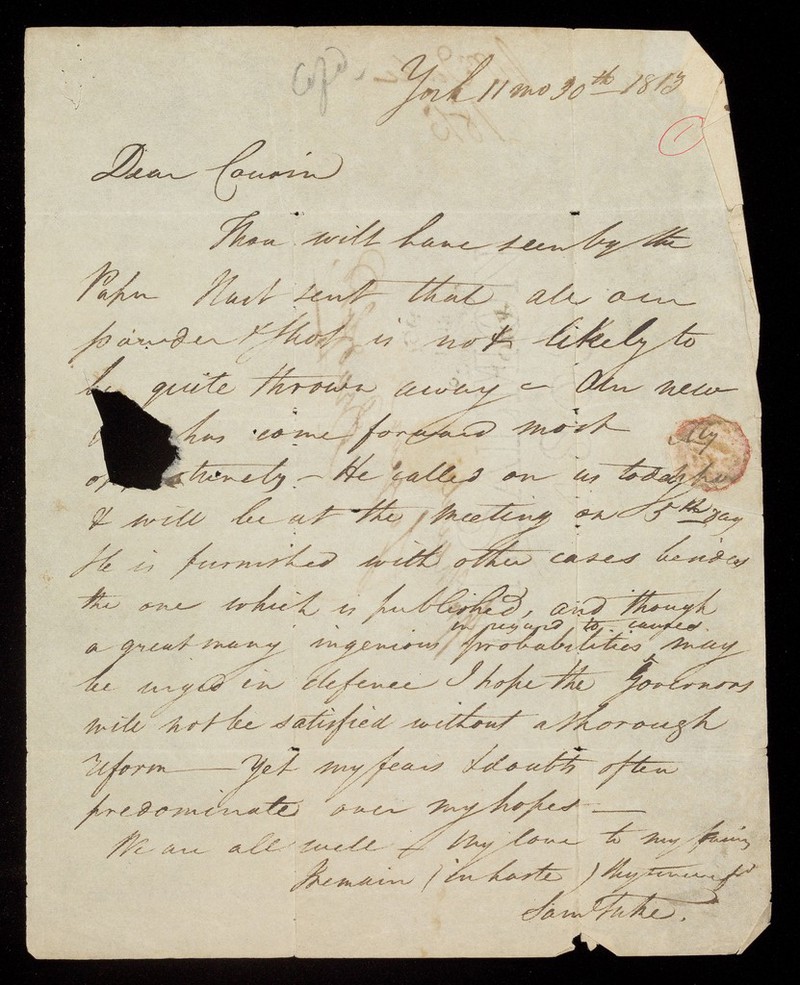 Cop^d
York 11 mo 30th 1813
1
Dear Cousin
Thou wilt have seen by the
Paper last sent that all our
powder & shot is not likely to
be quite thrown away – An new
has come forward most
op tunely – He called on us today
& will be at the meeting on 5th day
He is furnished with other cases besides
the one which is published, and though
in regard to causes
a great many ingenious probabilities ^ may
be urged in defence I hope the Governors
will not be satisfied without a thorough
reform — Yet my fears & doubts often
predominate over my hopes —
We are all well – My love to my
I remain (in haste) thy
Saml Tuke.